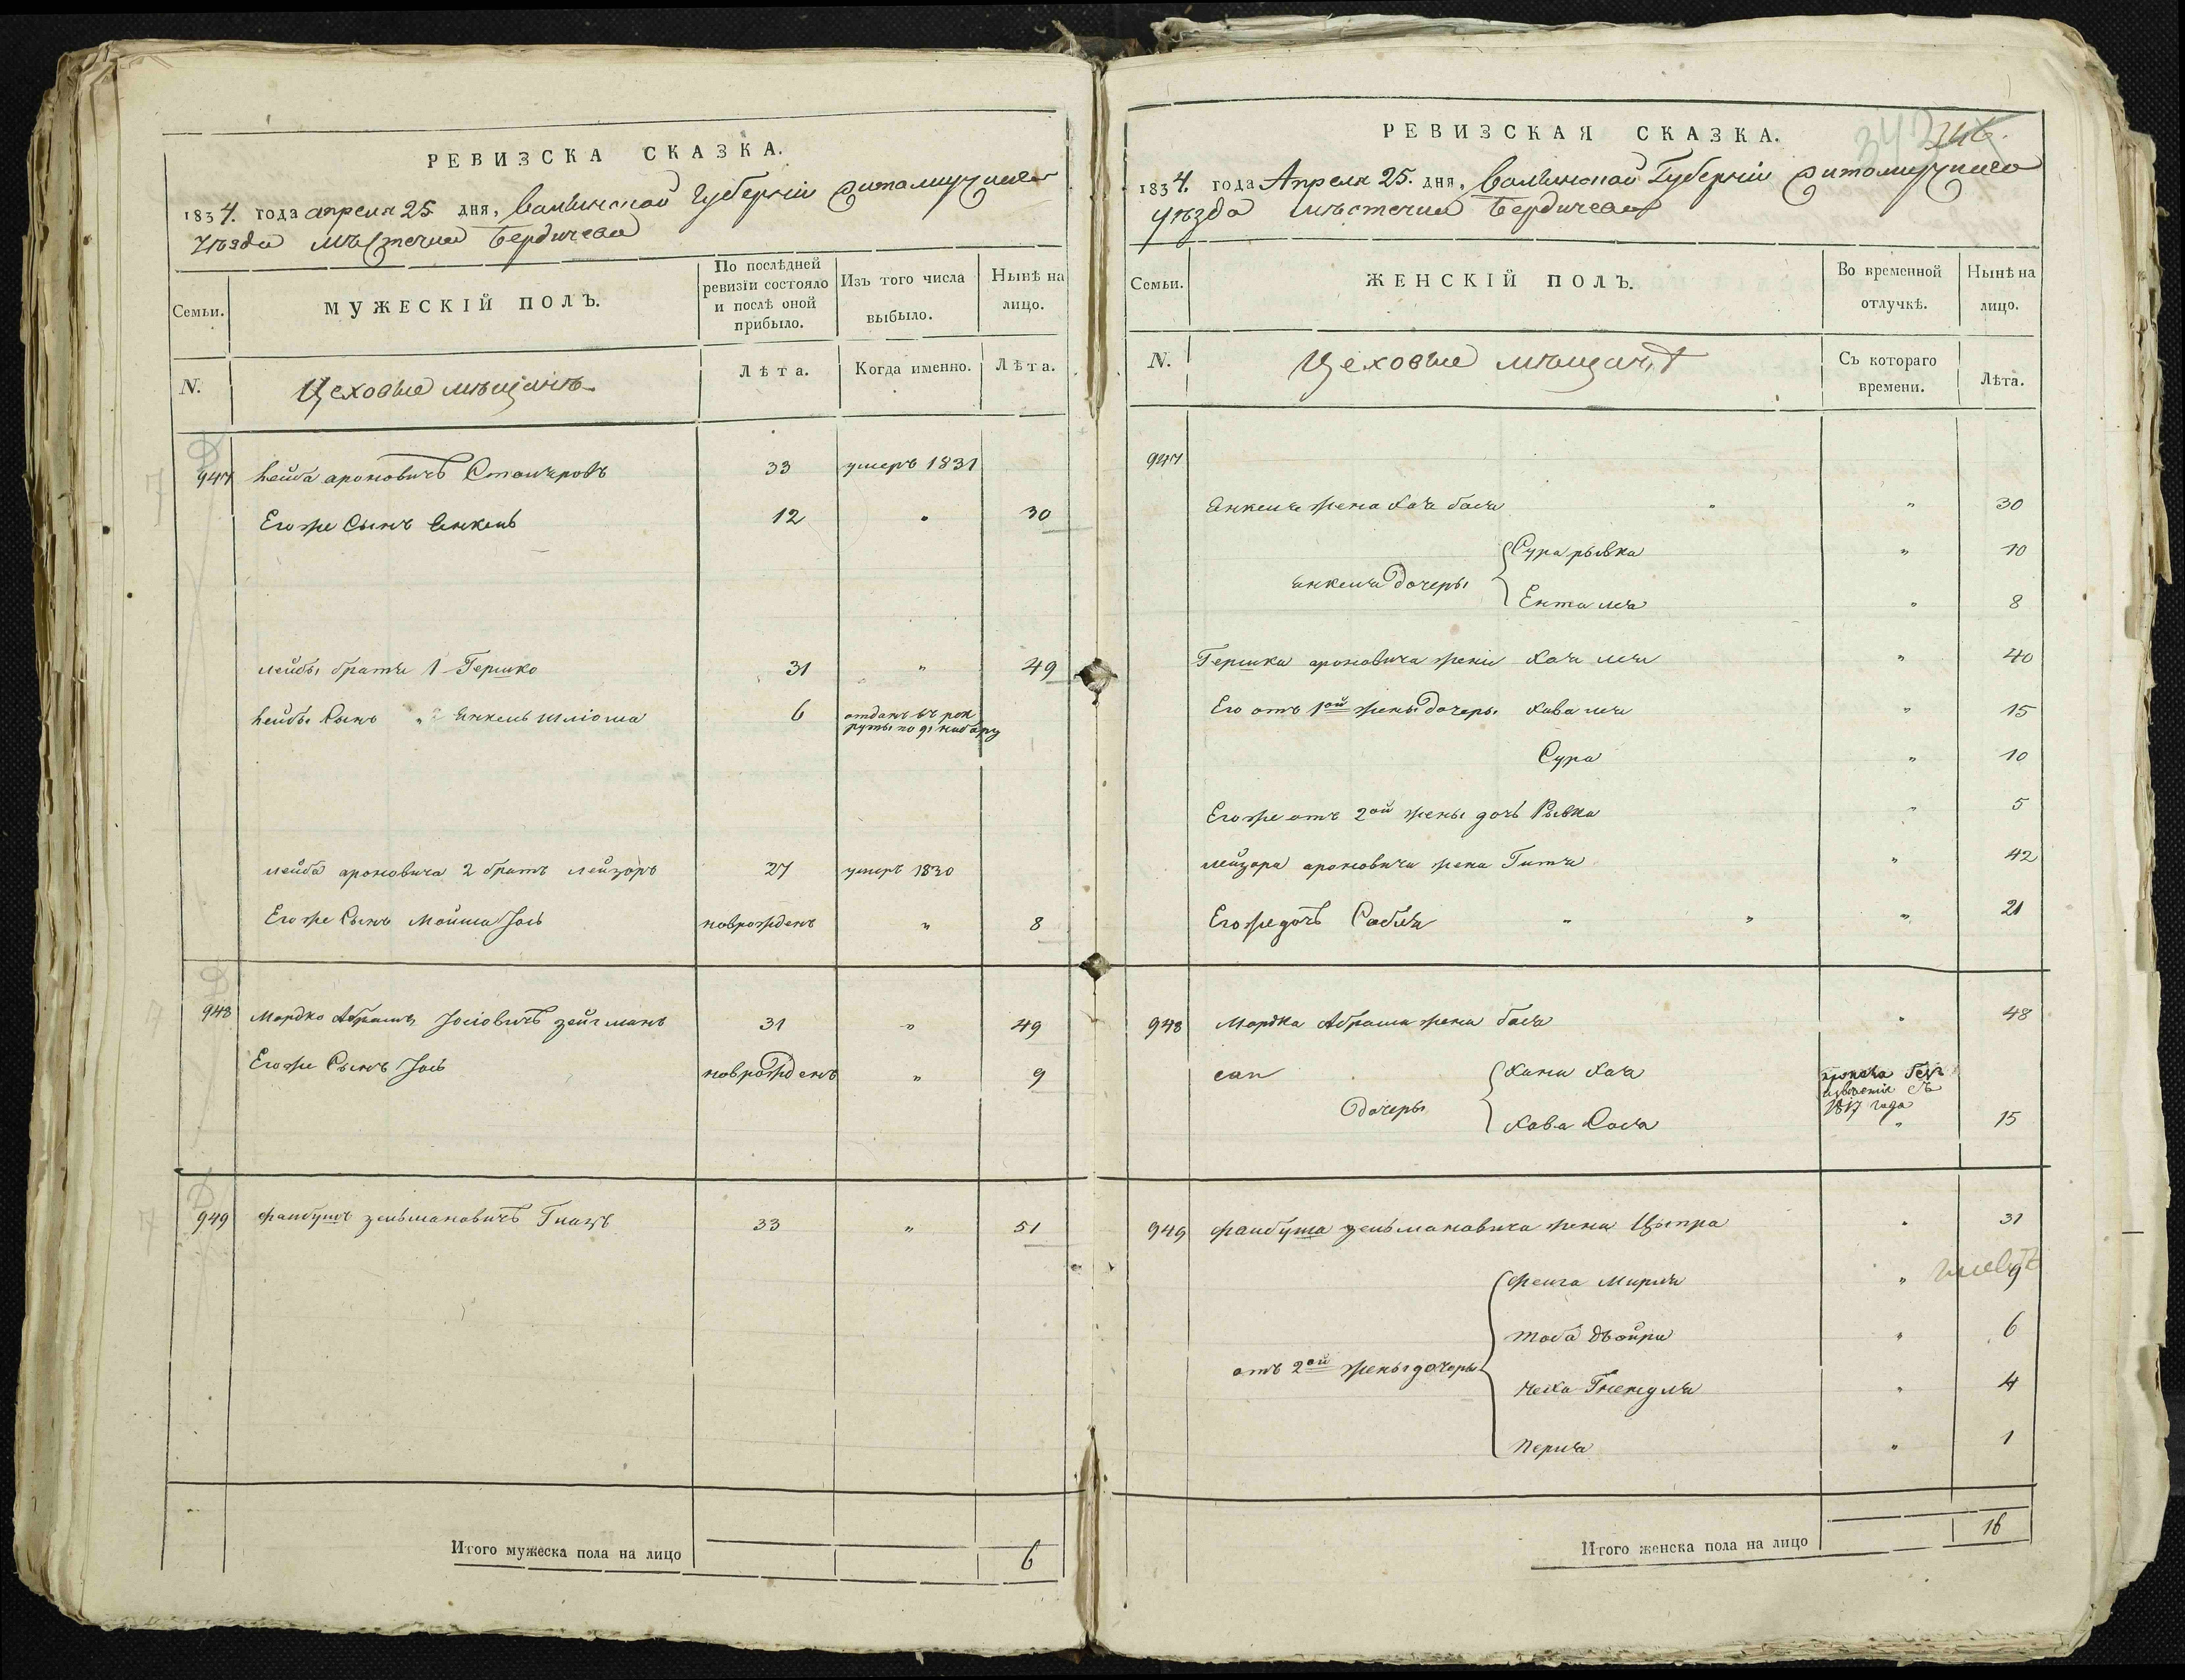 РЕВИЗСКА СКАЗКА.
1834. года апреля 25 дня, Волынской Губернiи Житомирскаго
уѣзда мѣстечка Бердичева
Семьи.
МУЖЕСКIЙ ПОЛЪ.
По послѣдней ревизiи состояло и послѣ оной прибыло.
Изъ того числа выбыло.
Нынѣ на лицо.
N.
Цеховые мѣщанѣ
Лѣта.
Когда именно.
Лѣта.
947 Лейба ароновичъ 33 умеръ 1831
Его же Сынъ Янкель 12 " 30
лейбы братья 1 Гершко 31 " 49
Лейбы Сынъ " Янкель шлiома 6 отданъ въ рек
руты по
лейба ароновича 2 братъ лейзоръ 27 умеръ 1830
Его же Сынъ Мойша Iось новрожденъ " 8
948 Мордко Абрамъ Iосiовичъ зейгманъ 31 " 49
Его же Сынъ Iось новрожденъ " 9
949 файбушъ зельмановичъ 33 " 51
Итого мужеска пола на лицо 6
РЕВИЗСКАЯ СКАЗКА.
342
1834. года Апреля 25. дня, Волынской Губернiи Житомирскаго
уѣзда мѣстечка Бердичева
Семьи.
ЖЕНСКIЙ ПОЛЪ.
Во временной отлучкѣ.
Нынѣ на лицо.
N.
Цеховые мѣщанѣ
Съ котораго времени.
Лѣта.
947
Янкеля жена Хая бася " " 30
Сура рывка " 10
янкеля дочеры
Ента лея " 8
Гершка ароновича жена Хая лея " 40
Его отъ 1ой жены дочеры Хава лея " 15
Сура " 10
Его же отъ 2ой жены дочь Рывка " 5
лейзора ароновича жена Гитля " 42
Его же дочь " " " 21
948 Мордка Абрама жена бася " 48
Хана Хая
дочеры
1817 года
Хава Сося " 15
949 файбуша зельмановича жена Ципра " 31
фейга Мирля " 9
тоба двойра " 6
отъ 2ой жены дочеры
неха Гнендля " 4
перля " 1
Итого женска пола на лицо 16